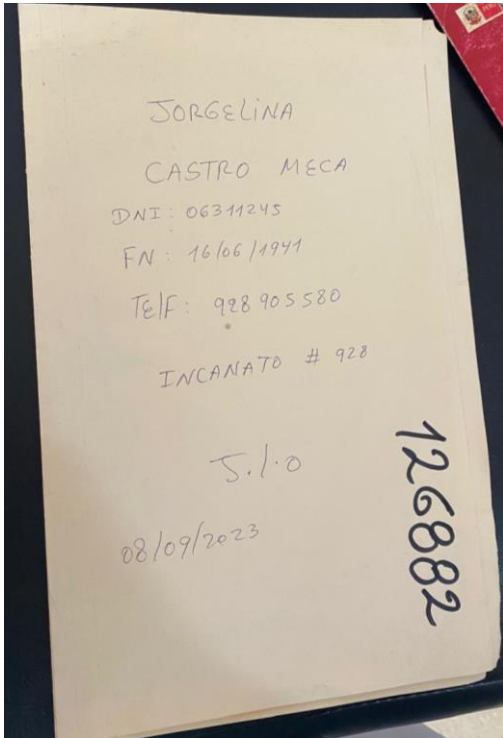 JORGELINA
CASTRO MECA
DNI: 06311245
FN: 16/06/1941
TE/F: 928 905 580
INCANATO # 928
S.l.o
08/09/2023
126882